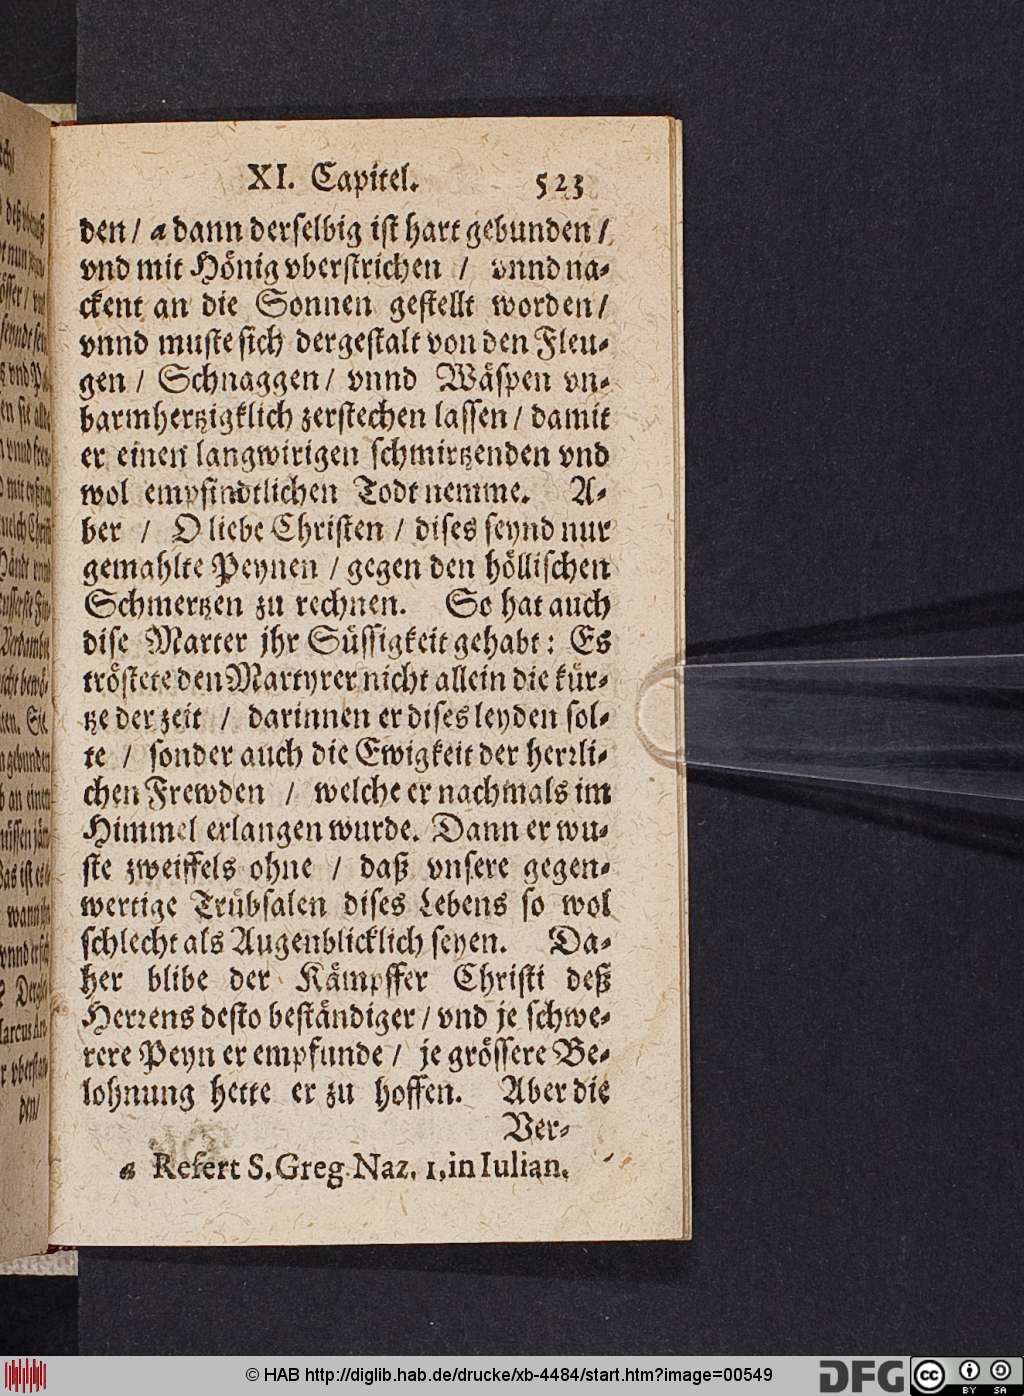 XI. Capitel. 523
den / a dann derselbig ist hart gebunden /
vnd mit Hönig vberstrichen / vnnd na-
ckent an die Sonnen gestellt worden /
vnnd muste sich dergestalt von den Fleu-
gen / Schnaggen / vnnd Wäspen vn-
barmhertzigklich zerstechen lassen / damit
er einen langwirigen schmirtzenden vnd
wol empfindtlichen Todt nemme. A-
ber / O liebe Christen / dises seynd nur
gemahlte Peynen / gegen den höllischen
Schmertzen zu rechnen. So hat auch
dise Marter jhr Süssigkeit gehabt: Es
tröstete den Martyrer nicht allein die kür-
tze der zeit / darinnen er dises leyden sol-
te / sonder auch die Ewigkeit der herrli-
chen Frewden / welche er nachmals im
Himmel erlangen wurde. Dann er wu-
ste zweiffels ohne / daß vnsere gegen-
wertige Trübsalen dises Lebens so wol
schlecht als Augenblicklich seyen. Da-
her blibe der Kämpffer Christi deß
Herrens desto beständiger / vnd je schwe-
rere Peyn er empfunde / je grössere Be-
lohnung hette er zu hoffen. Aber die
Ver-
a Refert S. Greg. Naz. 1. in Iulian.
© HAB http://diglib.hab.de/drucke/xb-4484/start.htm?image=00549
DFG
cc BY SA